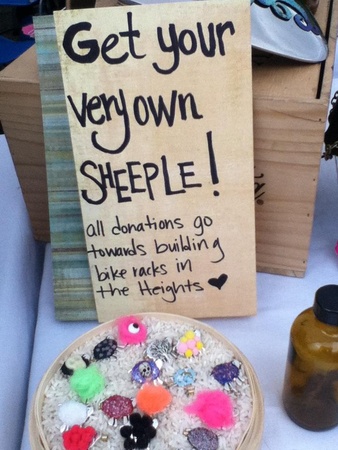 Get your
very own
SHEEPLE!
all donations go
towards building
bike racks in
the Heights ♥